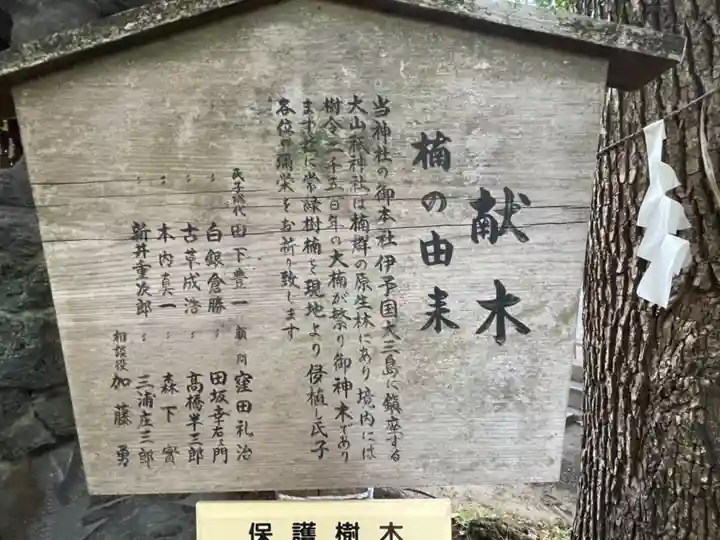 献木
楠の由来
当神社の御本社伊予国大三島に鎮座する
大山祇神社は楠群の原生林にあり境内には
樹令二千五百年の大楠が繁り御神木であり
ます茲に常緑樹楠を現地より移植し氏子
各位の彌栄をお祈り致します
氏子総代 田下豊一 顧問 窪田礼治
〃 白銀倉勝 〃 田坂幸右ェ門
〃 古草成浩 〃 高橋半三郎
〃 木内真一 〃 森下實
〃 新井重次郎 〃 三浦庄三郎
相談役 加藤勇
保護樹木